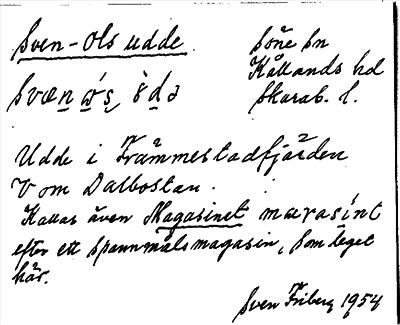 Sven-Ols udde
Söne sn
Kållands hd
Skarab. l.
Udde i Frammestadfjärden
V om Dalbostan.
Kallas även Magasinet
efter ett spannmålsmagasin, som legat
här.
Sven Friberg 1954